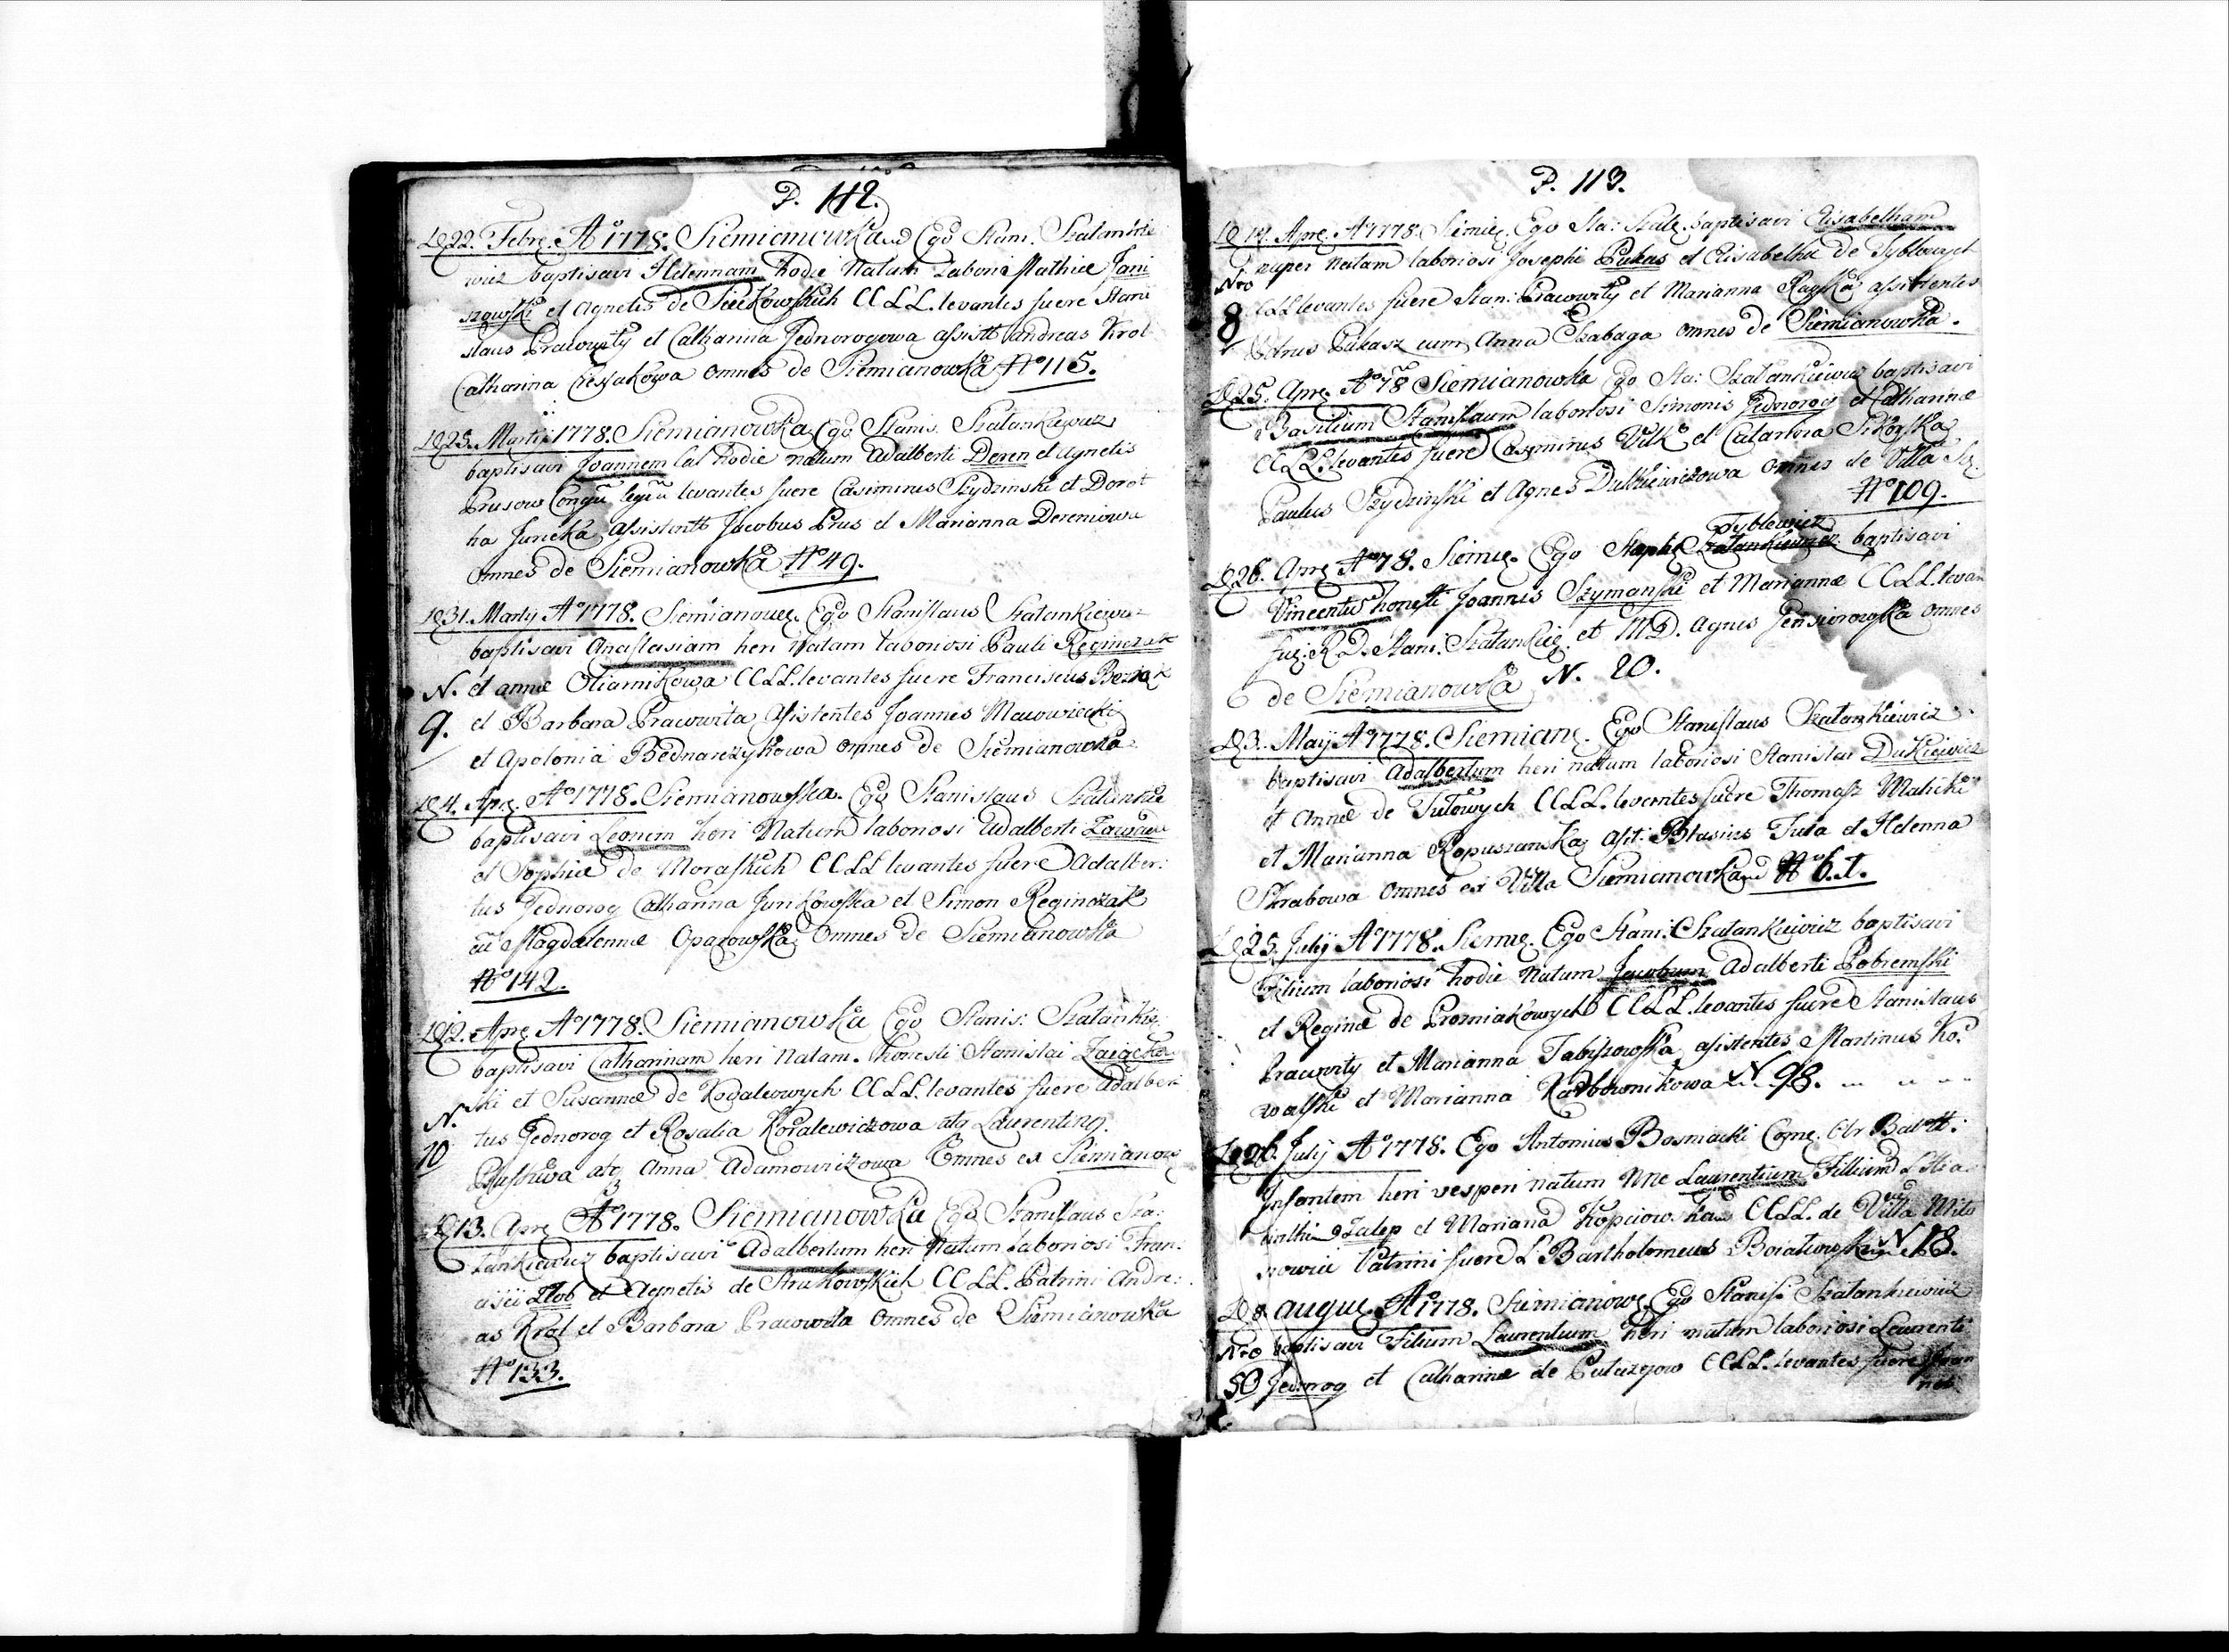 P. 112.
D 22. Febre. Aº 1778. Siemianowka Ego Stani. Szatankie
wicz baptisavi Helennam hodie Natam Labori Mathiæ Jani
szowski et Agnetis de Sieckowskich CCLL. levantes fuere Stani
slaus Pracowity et Catharina Jednorogowa assistt Andreas Krol
Catharina omnes de Siemianowka Nº 115.
D 25. Martij 1778. Siemianowka Ego Stanis. Szatankiewicz
baptisavi Joannem lab hodie natum Adalberti Deren et Agnetis
Prusow Congu legiu levantes fuere Casimirus Szydzinski et Dorot
ha Juricka assistentt Jacobus Prus et Marianna Dereniowa
omnes de Siemianowka Nº 49.
D 31. Martij Aº 1778. Siemianowę. Ego Stanislaus Szatankiewi
baptisavi Anastasiam heri Natam laboriosi Pauli Reginczak
N. et Annæ CCLL. levantes fuere Franciscus
9. et Barbara Pracowita Asistentes Joannes Macowiecki
et Apolonia Bednarczykowa omnes de Siemianowka
D 4. Apre. Aº 1778. Siemianowska. Ego Stanislaus Szatankie
baptisavi Leonem heri Natum laboriosi Adalberti
et Sophiæ de Moraskich CCLL levantes fuere Adalber:
tus Jednorog Catharina Jurikowska et Simon Reginczak
cu Magdalenna Oparowska Omnes de Siemianowka
Nº 142.
D 12. Apre Aº 1778. Siemianowka Ego Stanis: Szatankie:
baptisavi Catharinam heri Natam. honesti Stanislai Zaiączkow
ski et Susannæ de Kodalewowych CCLL. levantes fuere Adalber
N. tus Jednorog et Rosalia Koralewiczowa atq Laurentinq.
10 atq Anna Adamowiczowa Omnes ex Siemianow
D 13. Apre Aº 1778. Siemianowka Ego Stanislaus Sza:
tankiewicz baptisavi Adalbertum heri Natum laboriosi Fran:
cisci Zlob et Agnetis de Strukowskich CCLL. Patrini Andre:
as Krol et Barbara Pracowita omnes de Siemianowka
Nº 133.
P. 113.
D 19. Apre. Aº 1778. Siemię. Ego Sta: Szatę. baptisavi Elisabetham
nuper Natam laboriosi Josephi Pukas et Elisabetha de Tyblowych
Nro
8 CCLL levantes fuere Stan: Pracowity et Marianna assistentes
Petrus Pukasz cum Anna Szabaga omnes de Siemianowka.
D 25. Apre. Aº 78 Siemianowka Ego Sta: Szatankiewicz baptisavi
Basilium Stanislaum laboriosi Simonis Jednorog et Catharinæ
CCLL. levantes fuere Casymirus Vilk et Catarina Sikoyska
Paulus Szydzinski et Agnes Dulkiewiczowa omnes de Villa Się.
Nº 109.
Tyblewicz
D 26. Apre Aº 78. Siemię. Ego Steph Szatankiewicz baptisavi
Vincentiu honesti Joannis Szymanski et Mariannæ CCLL. levan
fuę. R.D. Stani. Szatankię. et M.D. Agnes omnes
de Siemianowka N. 20.
D 3. Maij Aº 1778. Siemianę. Ego Stanislaus Szatankiewicz
baptisavi Adalbertum heri natum laboriosi Stanislai Dulkiewicz
et Annæ de Tutowych CCLL. levantes fuere Thomasz Malicki
et Marianna Ropuszanska asit: Blasius Tuta et Helenna
Skrabowa omnes ex Villa Siemianowka Nº 61.
D 25. Julij Aº 1778. Siemię. Ego Stani: Szatankiewicz baptisavi
Filium laboriosi hodie Natum Jacobum Adalberti Dobremski
et Reginæ de Prozniakowych CCLL. levantes fuere Stanislaus
Pracowity et Marianna Tabiszowska asistentes Martinus Ko:
walski et Marianna Karbownikowa N. 98.
D 26. Julij Aº 1778. Ego Antonius Bosmacki Baptt:
Infantem heri vesperi natum Nne Laurentium Fillium
et Mariana CCLL. de Villa Mito
Patrini fuere L Bartholomeus N 18.
D 8. Auguę. Aº 1778. Siemianowę. Ego Stanisł Szatankiewicz
Nro baptisavi Filium Laurentium heri natum laboriosi Laurenti
50 Jednorog et Catharinæ de CCLL. levantes fuere Joan
nes